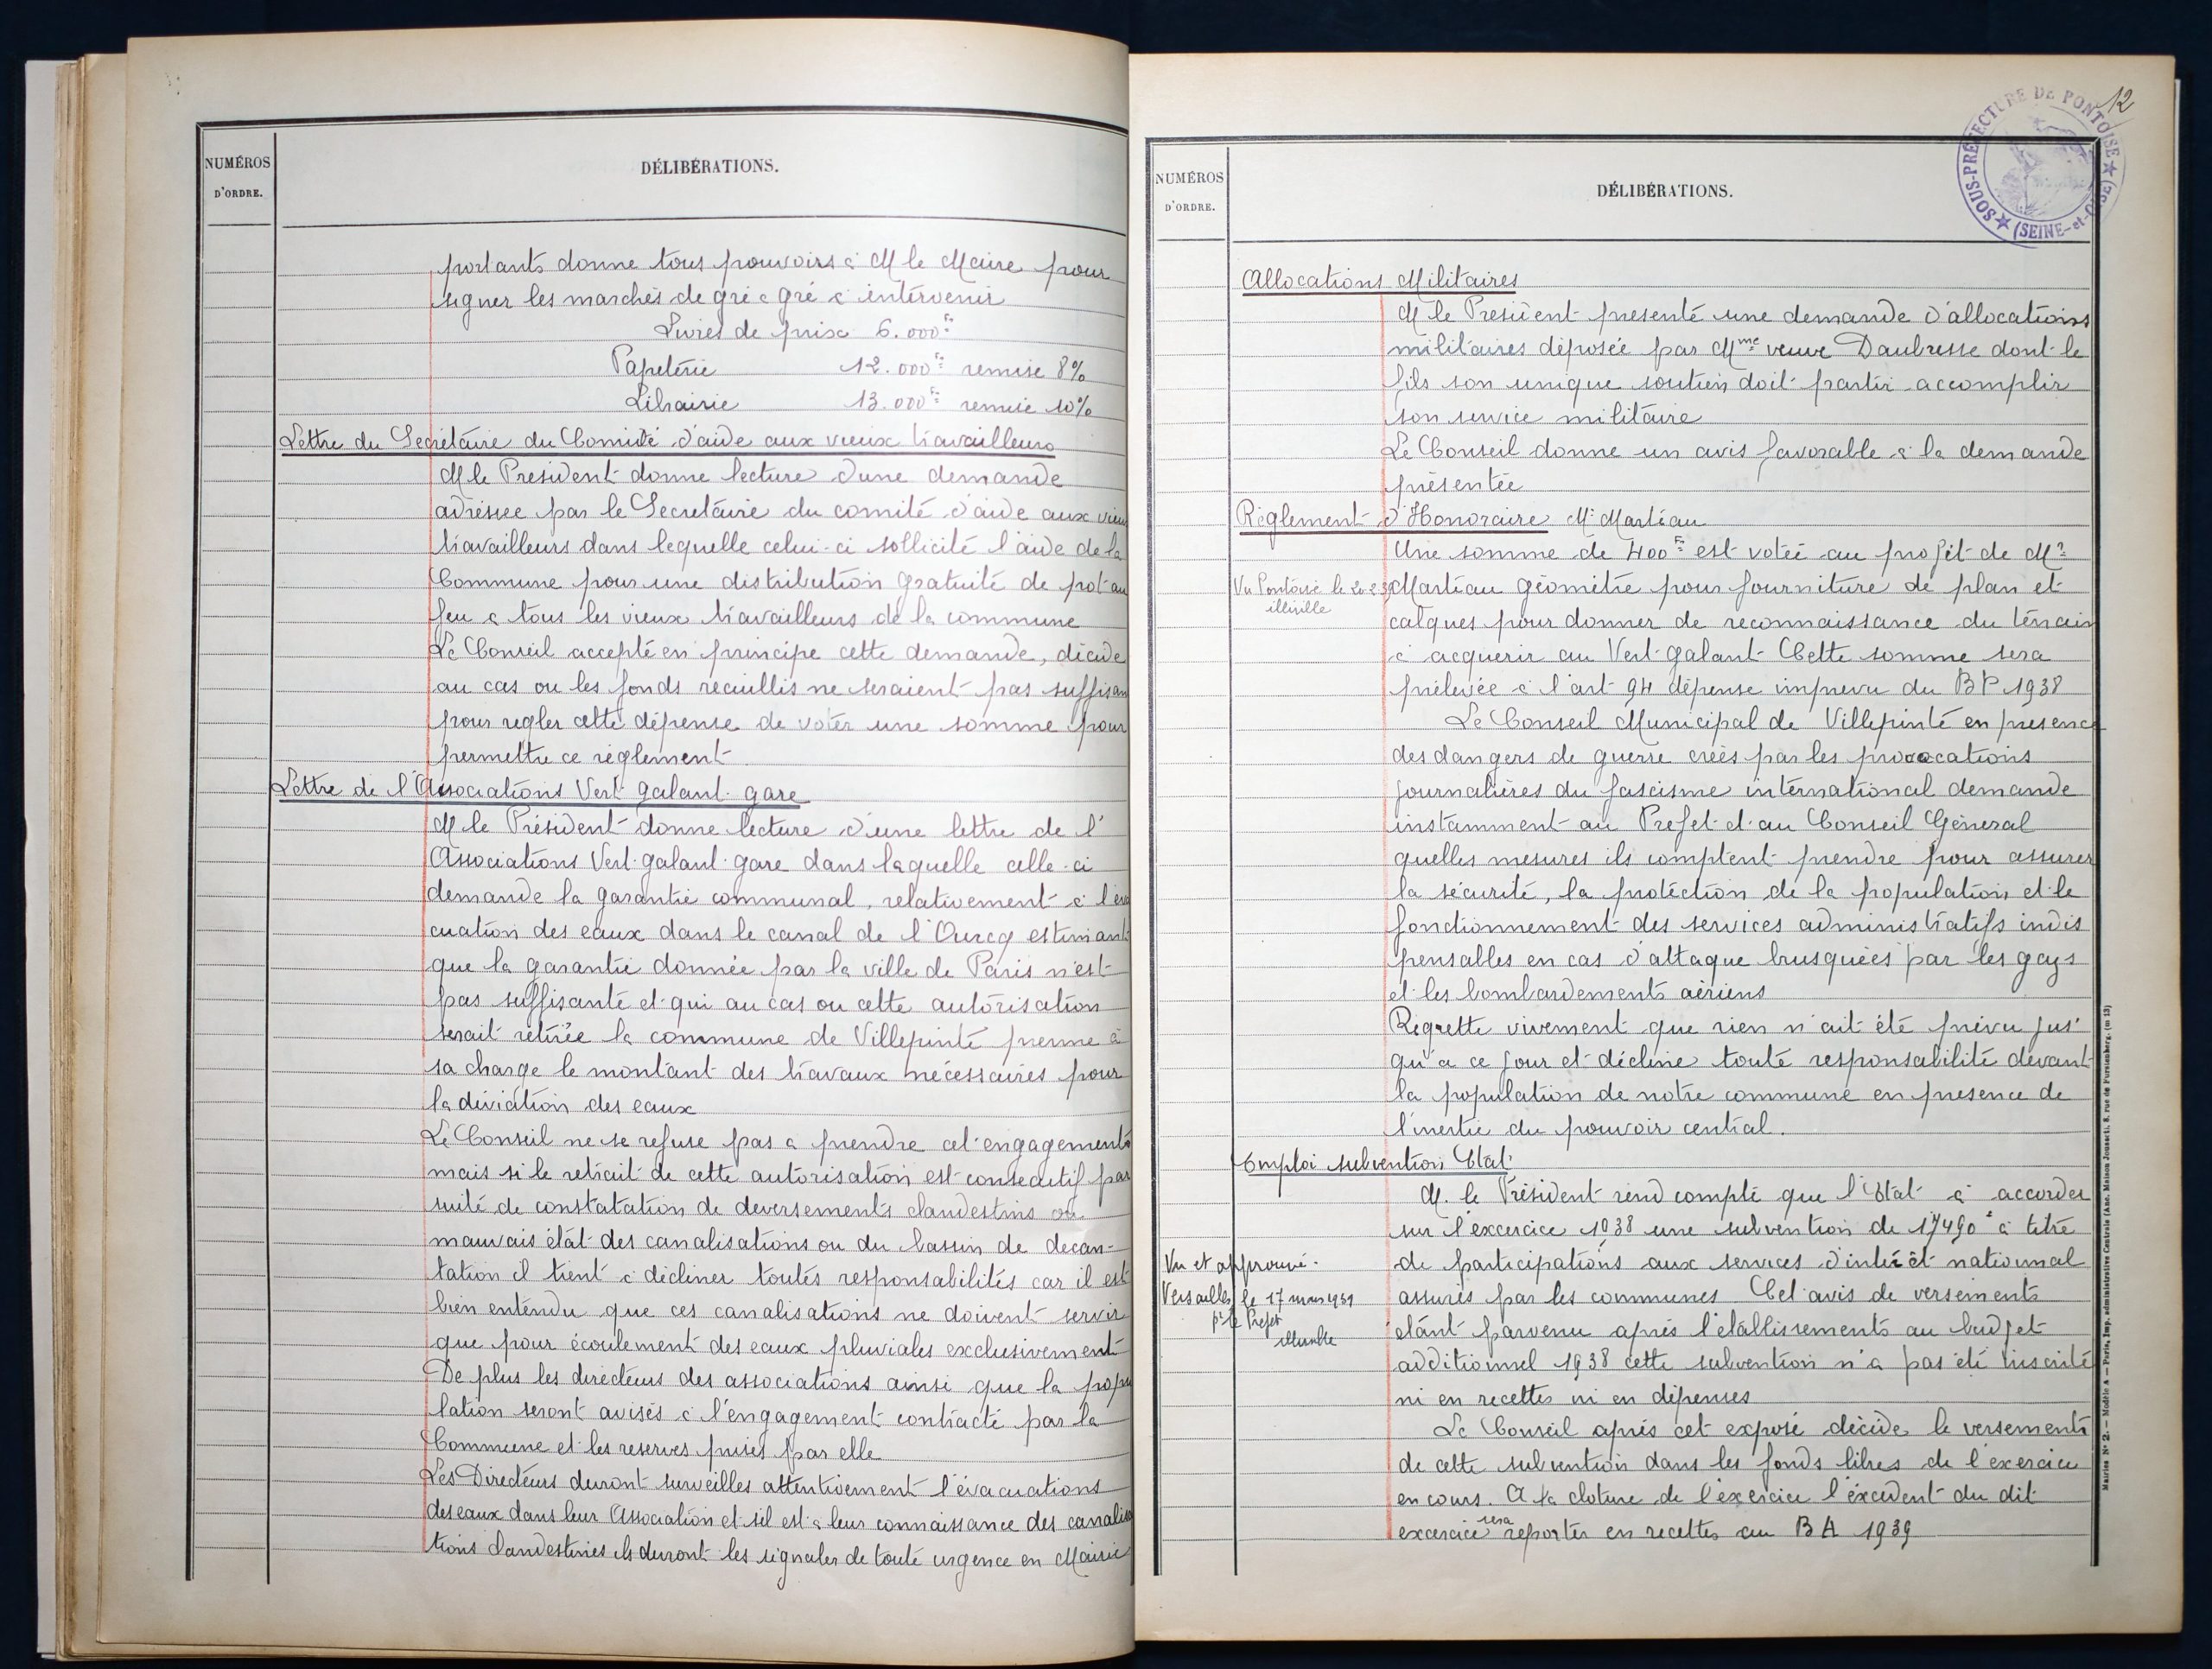 NUMÉROS
D'ORDRE.
DÉLIBÉRATIONS.
portants donne tous pouvoirs à M le Maire pour
signer les marchés de gré a gré à intervenir
Livres de prix 6.000 fr
Papeterie 12.000 fr remise 8%
Librairie 13.000 fr remise 10%
Lettre du Secrétaire du Comité d'aide aux vieux travailleurs
M le Président donne lecture d'une demande
adressée par le Secretaire du comité d'aide aux vieux
travailleurs dans lequelle celui-ci sollicite l'aide de la
Commune pour une distribution gratuite de pot au
feu a tous les vieux travailleurs de la commune
Le Conseil accepte en principe cette demande, décide
au cas ou les fonds recuillis ne seraient pas suffisan
pour regler cette dépense de voter une somme pour
permettre ce réglement
Lettre de l'Associations Vert-galant-gare
M le Président donne lecture d'une lettre de l'
Associations Vert-galant-gare dans laquelle celle-ci
demande la garantie communal, relativement à l'éva
cuation des eaux dans le canal de l'Ourcq estimant
que la garantie donnée par la ville de Paris n'est
pas suffisante et qui au cas ou cette autorisation
serait retirée la commune de Villepinte prenne à
sa charge le montant des travaux nécessaires pour
la déviation des eaux
Le Conseil ne se refuse pas a prendre cet engagements
mais si le retrait de cette autorisation est consecutif par
suite de constatation de deversements clandestins ou
mauvais état des canalisations ou du bassin de decan-
tation il tient à décliner toutes responsabilités car il est
bien entendu que ces canalisations ne doivent servir
que pour écoulement des eaux pluviales exclusivement
De plus les directeurs des associations ainsi que la popu
lation seront avisés à l'engagement contracté par la
Commune et les reserves prises par elle
Les Directeurs devront surveilles attentivement l'évacuations
des eaux dans leur Association et s'il est à leur connaissance des canalisa
tions clandestines ils devront les signaler de toute urgence en Mairie
12
SOUS-PRÉFECTURE DE PONTOISE
(SEINE-et-OISE)
NUMÉROS
D'ORDRE.
DÉLIBÉRATIONS.
Allocations Militaires
M le Président presente une demande d'allocations
militaires déposée par Mme veuve Daubresse dont le
fils son unique soutien doit partir accomplir
son service militaire
Le Conseil donne un avis favorable à la demande
présentée
Règlement d'Honoraire Mr Marteau
Une somme de 400 fr est votée au profit de Mr
Vu Pontoise le
illisible
Marteau géomètre pour fourniture de plan et
calques pour donner de reconnaissance du terrain
à acquerir au Vert-galant Cette somme sera
prélevée à l'art 94 dépense imprevu du BP 1938
Le Conseil Municipal de Villepinte en presence
des dangers de guerre créés par les provocations
journalières du fascisme international demande
instamment au Prefet et au Conseil Général
quelles mesures ils comptent prendre pour assurer
la sécurité, la protection de la population et le
fonctionnement des services administratifs indis
pensables en cas d'attaque brusquées par les gays
et les bombardements aériens
Regrette vivement que rien n'ait été prévu jus'
qu'a ce jour et décline toute responsabilité devant
la population de notre commune en presence de
l'inertie du pouvoir central.
Emploi subvention Etat
M. le Président rend compte que l'Etat à accorder
sur l'excercice 1938 une subvention de 17490 f à titre
de participations aux services d'intérêt nationnal
Vu et approuvé.
Versailles le 17 mars 1939
pr le Prefet
illisible
assurés par les communes Cet avis de versements
étant parvenu après l'établissements au budjet
additionnel 1938 cette subvention n'a pas été inscrite
ni en recettes ni en dépenses
Le Conseil après cet exposé décide le versements
de cette subvention dans les fonds libres de l'exercice
en cours. A la cloture de l'éxercice l'éxcedent du dit
excercice sera reporter en recettes au BA 1939
Mairies N° 2. — Modèle A — Paris, Imp. administrative Centrale (Anc. Maison Jousset), 8, rue de Furstenberg. (m 13)